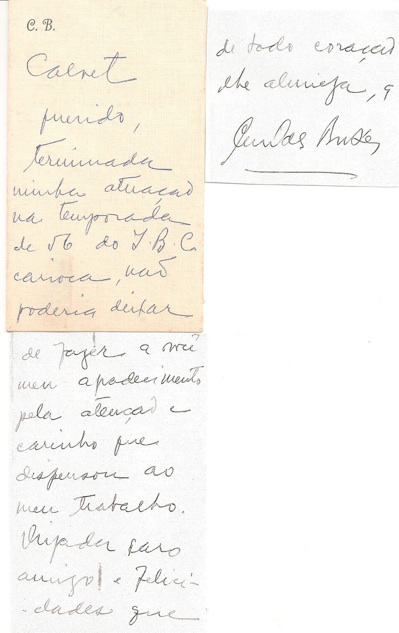 C. B.
Calvet
querido,
terminada
minha atuação
na temporada
de 56 do T.B.C.
carioca, não
poderia deixar
de fazer a você
meu agradecimento
pela atenção e
carinho que
dispensou ao
meu trabalho.
Obrigada caro
amigo e Felici-
-dades que
de todo coração
lhe almeja, a